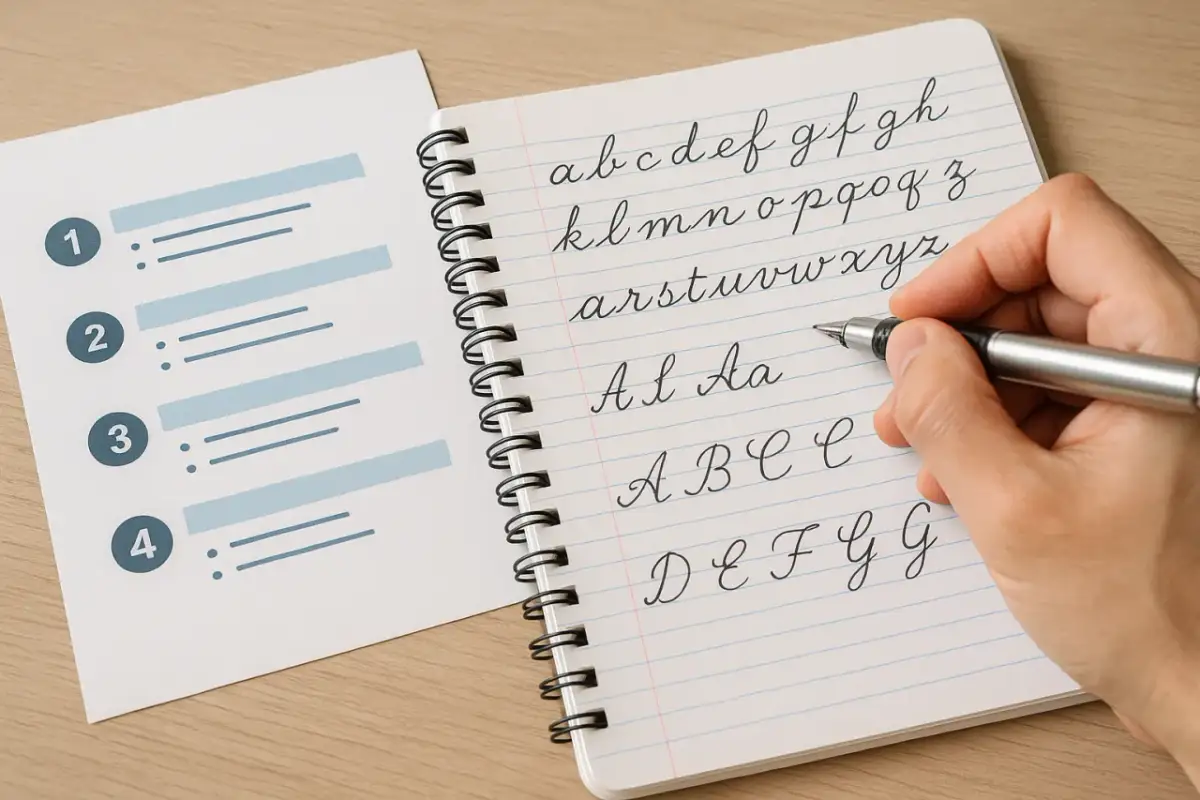 1
2
3
4
a b c d e f g f g h
k l m n o p q o q z
a r s t u v w x y z
A l A a
A B C C
D E F G G